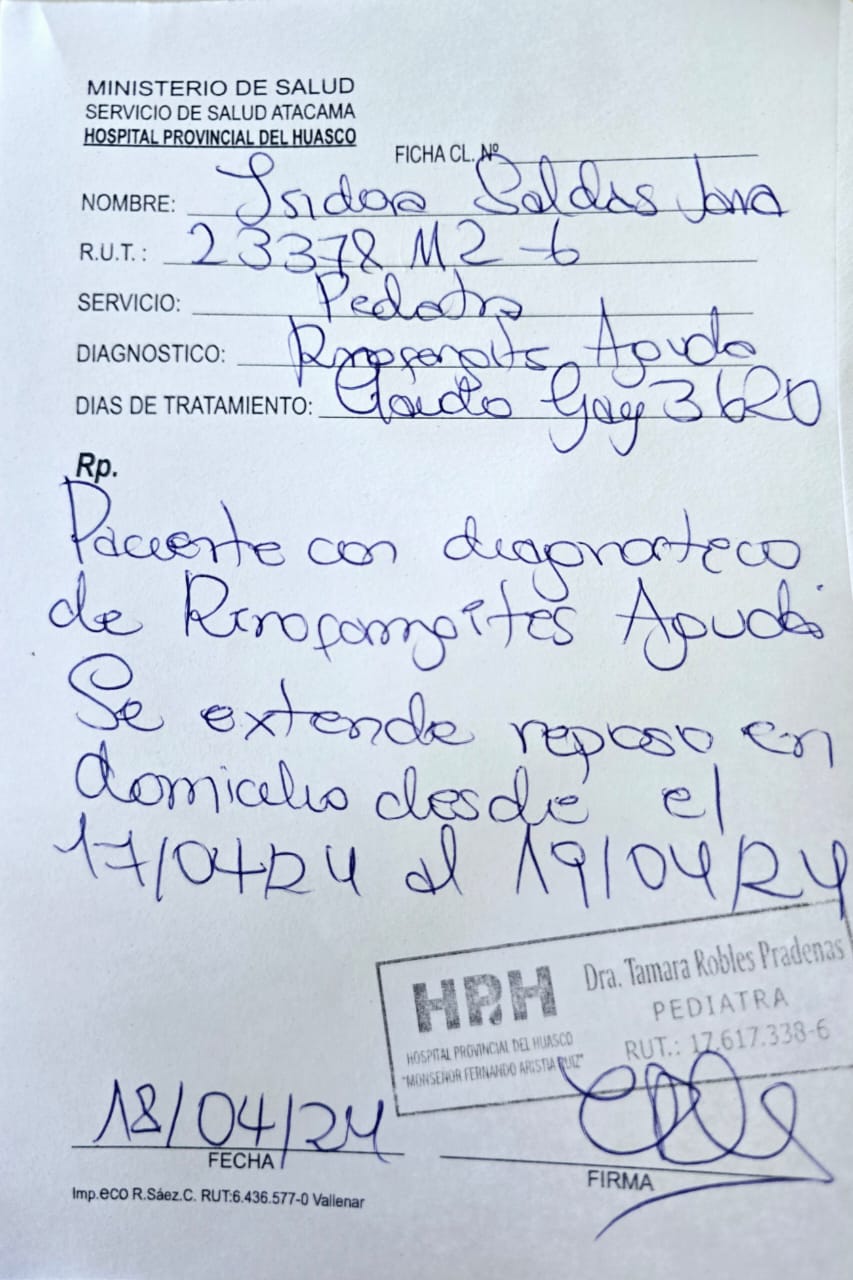 MINISTERIO DE SALUD
SERVICIO DE SALUD ATACAMA
HOSPITAL PROVINCIAL DEL HUASCO
FICHA CL. Nº
NOMBRE: Isidora Saldas Jara
R.U.T.: 23378112-6
SERVICIO: Pediatria
DIAGNOSTICO: Aguda
DIAS DE TRATAMIENTO: Claudio Gay 3620
Rp.
Paciente con diagnostico
de Rinofaringitis Aguda
Se extende reposo en
domicilio desde el
17/04/24 al 19/04/24
HPH Dra. Tamara Robles Pradenas
PEDIATRA
HOSPITAL PROVINCIAL DEL HUASCO RUT.: 17.617.338-6
"MONSEÑOR FERNANDO ARISTIA RUIZ"
18/04/24
FECHA
FIRMA
Imp.eco R.Sáez.C. RUT:6.436.577-0 Vallenar